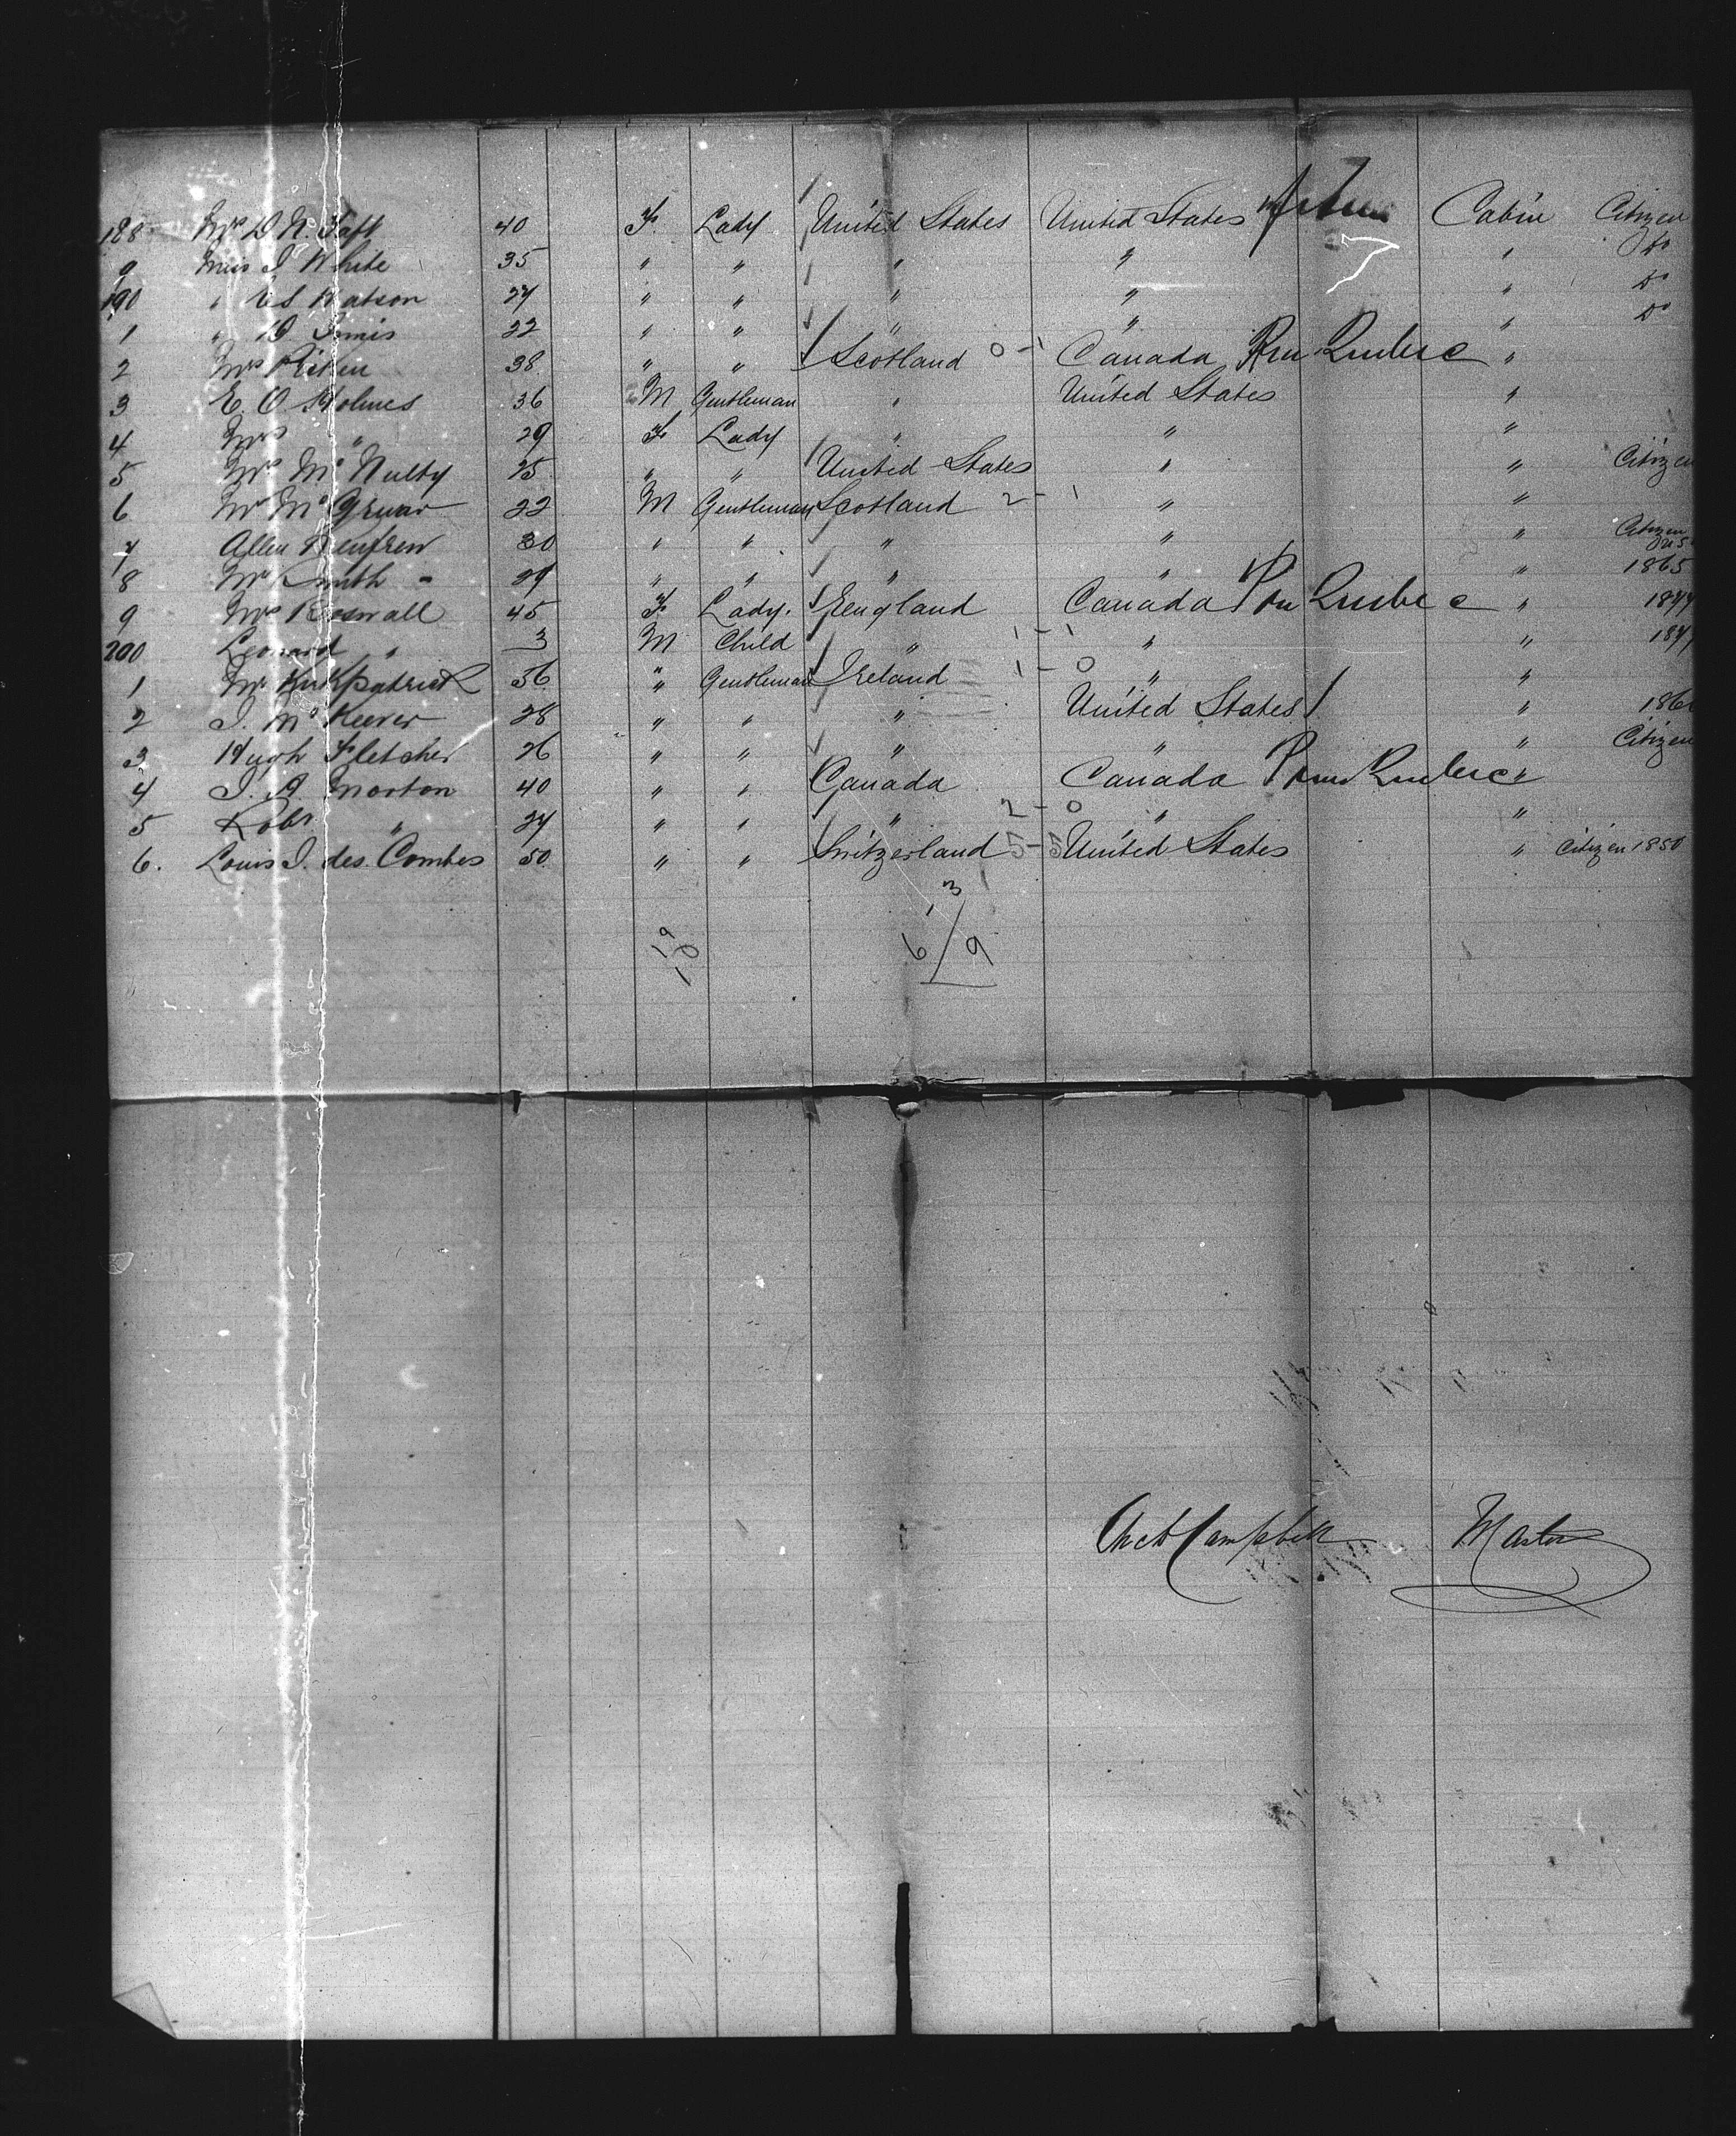 188 Mrs D. N. Taft 40 F. Lady United States United States Cabin Citizen
9 Miss J White 35 " " " " " Do
190 " E S Watson 27 " " " " " Do
1 " D Innis 22 " " " " " Do
2 Mrs 38 " " Scotland 0 - 1 Canada Quebec "
3 E. O Holmes 36 M Gentleman " United States "
4 Mrs " 29 F Lady " " "
5 Mrs Mc Nulty 25 " " United States " " Citizen
6 Mr Mc Gruar 22 M Gentleman Scotland 2 - 1 " "
7 Allen Renfrew 30 " " " " " Citizen
8 Mr Smith 29 " " " " " 1865
9 Mrs Roswall 45 F. Lady. England Canada Quebec " 1877
200 Leonard " 3 M Child " 1 - 1 " " 187
1 Mr Kirkpatrick 56 " Gentleman Ireland 1 - 0 " "
2 J. Mc Keever 28 " " " United States " 186
3 Hugh Fletcher 26 " " " " " Citizen
4 J. A Morton 40 " " Canada Canada Quebec "
5 Robt " 24 " " " 2 - 0 " "
6. Louis J. des Combes 50 " " Switzerland 5 - 5 United States " Citizen 1850
3
1
9 6 / 9
10
Arch Campbell Master